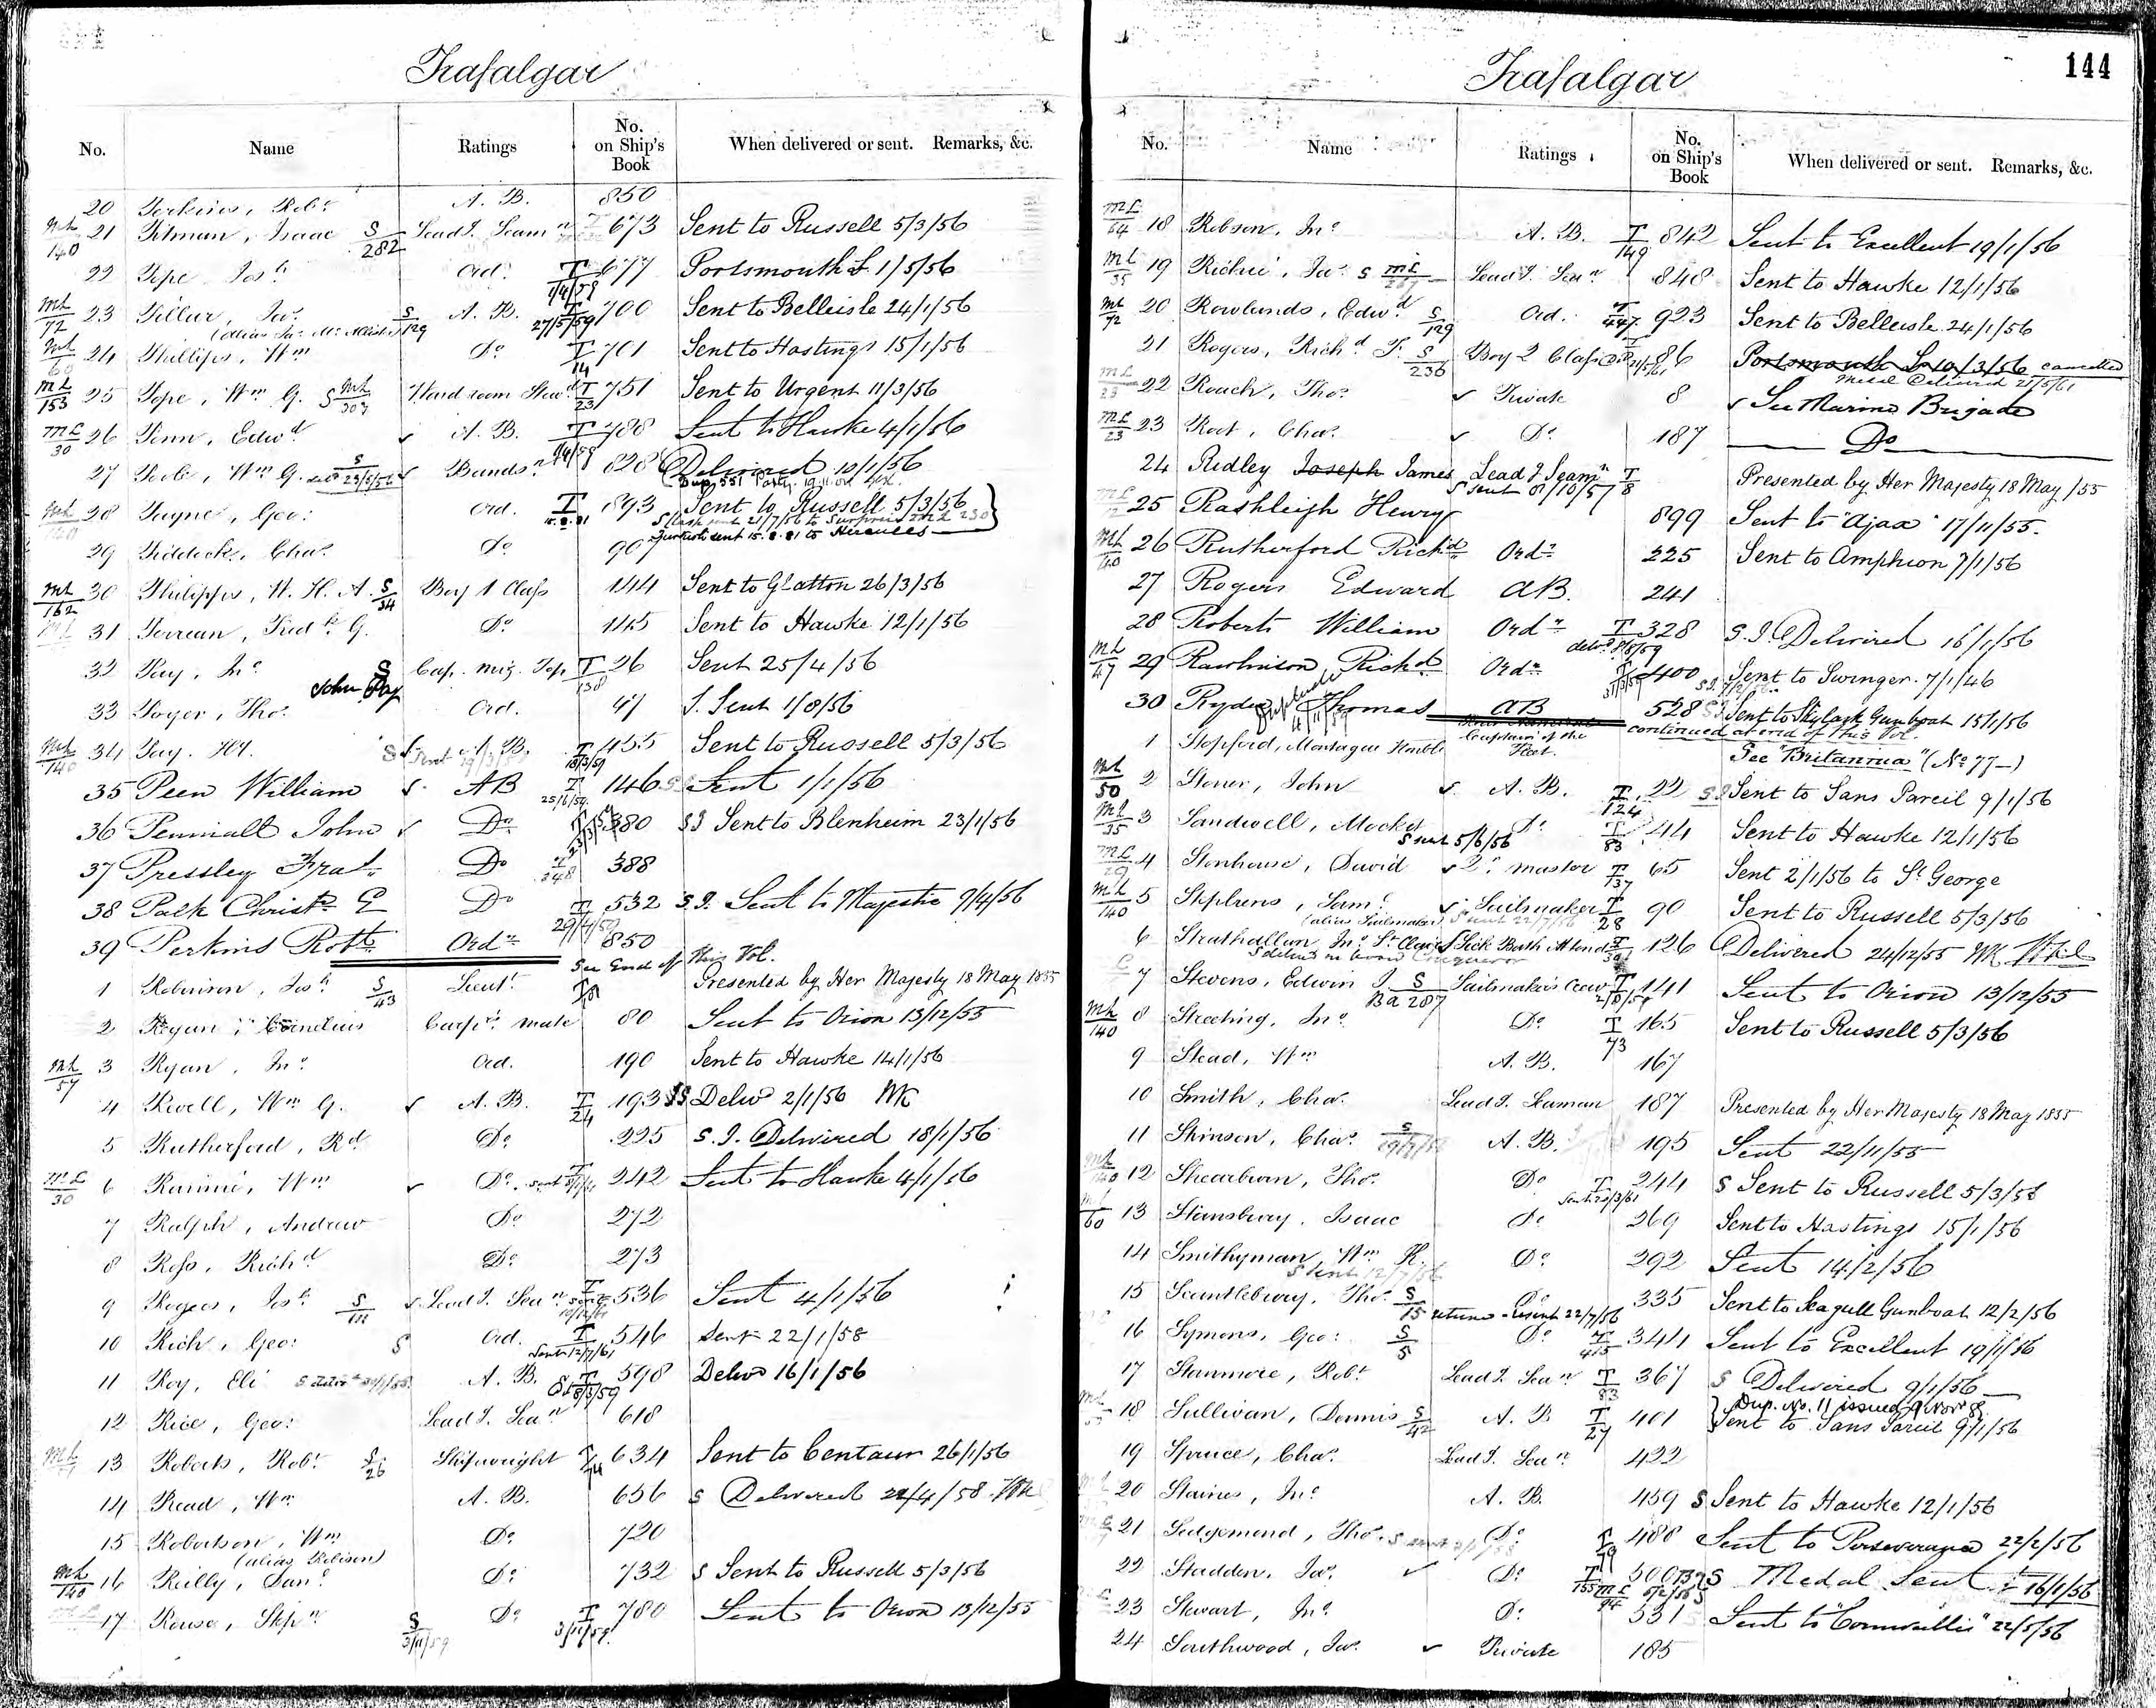 Trafalgar
No. Name Ratings No. on Ship's Book When delivered or sent. Remarks, &c.
20 Perkins, Robt A. B. 850
ML/140 21 Pitman, Isaac S/282 Leadg. Seamn 673 Sent to Russell 5/3/56
22 Pope Josh Ord. T 1/4/59 677 Portsmouth S. 1/5/56
ML/72 23 Pillar, Jas. S/129 A. B. T 27/5/59 700 Sent to Belleisle 24/1/56
(alias Jas. Mc
ML/60 24 Phillips, Wm Do T/14 701 Sent to Hastings 15/1/56
ML/153 25 Pope, Wm G. S ML/307 Ward room Stewd T/23 751 Sent to Urgent 11/3/56
ML/30 26 Penn, Edwd A. B. T 788 Sent to Hawke 4/1/56
27 Poole, Wm G. S Bandsn 828 Delivered 10/1/56
28 Payne, Geo: Ord. T 15.8.81 893 Sent to Russell 5/3/56
Turkish sent 15.8.81 to Hercules
29 Piddock, Chas. Do 907
ML/162 30 Philipps, W. H. A. S/34 Boy 1 Class 144 Sent to Glatton 26/3/56
ML 31 Perrean, Fredk G. Do 145 Sent to Hawke 12/1/56
32 Pay, Jno S Cap. Miz. Top T/138 26 Sent 25/4/56
John Pay
33 Poyer, Thos. Ord. 47 S. Sent 1/8/56
ML/140 34 Pay, Wm. A. B. T 18/3/59 455 Sent to Russell 5/3/56
35 Peen William AB T 25/6/59 146 Sent 1/1/56
36 Penniall John Do T 380 SS Sent to Blenheim 23/1/56
37 Pressley Fras. Do T/248 388
38 Palk Christr E Do T 29/4/59 532 S.S. Sent to Majestic 9/4/56
39 Perkins Robt. Ordn 850
See End of this Vol.
1 Robinson, Josh S/43 Lieut. T Presented by Her Majesty 18 May 1855
2 Ryan, Cornelius Carpr. mate 80 Sent to Orion 13/12/55
ML/57 3 Ryan, Jno. Ord. 190 Sent to Hawke 14/1/56
4 Revell, Wm G. A. B. T/24 193 SS Delivd 2/1/56 MK
5 Rutherford, Rd Do 225 S.S. Delivered 18/1/56
ML/30 6 Rainie, Wm Do. 242 Sent to Hawke 4/1/56
7 Ralph, Andrew Do 272
8 Ross, Richd Do 273
9 Rogers, Josh. S Leadg. Sean T 536 Sent 4/1/56
10 Rich, Geo: S Ord. T Sent 12/7/61 546 Sent 22/1/58
11 Roy, Eli A. B. T 8/3/59 598 Delivd 16/1/56
12 Rice, Geo: Leadg. Sean 618
ML 13 Roberts, Robt S/26 Shipwright T/74 634 Sent to Centaur 26/1/56
14 Read, Wm A. B. 656 S Delivered 22/4/58
15 Robertson, Wm Do 720
(alias Robison)
ML/140 16 Reilly, Danl Do 732 S Sent to Russell 5/3/56
17 Rouse, Stepn S 3/11/59 Do T 3/11/59 780 Sent to Orion 13/12/55
144
Trafalgar
No. Name Ratings No. on Ship's Book When delivered or sent. Remarks, &c.
ML/64 18 Robson, Jno A. B. T/149 842 Sent to Excellent 19/1/56
ML/35 19 Richie, Jas. S ML Leadg. Sean 848 Sent to Hawke 12/1/56
ML/72 20 Rowlands, Edwd S/129 Ord. T/447 923 Sent to Belleisle 24/1/56
21 Rogers, Richd T. S/236 Boy 2 Class 86 Portsmouth S. 10/3/56 cancelled
Medal Delivered 21/5/61
ML/23 22 Roach, Thos. Private 8 See Marine Brigade
ML/23 23 Root, Chas. Do. 187 Do
24 Ridley Joseph James Leadg Seamn T/8 Presented by Her Majesty 18 May /55
S sent 8/10/57
25 Rashleigh Henry 899 Sent to "Ajax" 17/11/55.
ML/10 26 Rutherford Richd Ordn 225 Sent to Amphion 7/1/56
27 Rogers Edward AB. 241
28 Roberts William Ordn T 328 S.S. Delivered 16/1/56
ML/47 29 Rawlinson Richd Ordn 400 Sent to Swinger. 7/1/46
30 Ryder Thomas AB 528 Sent to Skylark Gunboat 15/1/56
continued at end of this Vol.
1 Stopford, Montague Honble Captain of the Fleet. See "Britannia" (No 77-)
ML/50 2 Stoner, John A. B. T/124 22 Sent to Sans Pareil 9/1/56
ML/35 3 Sandwell, Mocket Do T/83 44 Sent to Hawke 12/1/56
S sent 5/6/56
ML/29 4 Stonhouse, David 2d master T/137 65 Sent 2/1/56 to St George
ML/140 5 Stephens, Saml. Sailmaker T/28 90 Sent to Russell 5/3/56
6 Strathallan Jno St Clair Sick Berth Attendt T 126 Delivered 24/12/55 MK
7 Stevens, Edwin J. S/Ba 287 Sailmaker's Crew T 141 Sent to Orion 13/12/55
ML/140 8 Streeting, Jno. Do T/73 165 Sent to Russell 5/3/56
9 Stead, Wm A. B. 167
10 Smith, Chas. Leadg. Seaman 187 Presented by Her Majesty 18 May 1855
11 Stinson, Chas. S A. B. 195 Sent 22/11/55
ML/140 12 Shearburn, Thos. Do T 244 S Sent to Russell 5/3/56
ML/60 13 Stansbury, Isaac Do 269 Sent to Hastings 15/1/56
14 Smithyman, Wm H. Do 292 Sent 14/2/56
S sent 12/7/56
15 Scantlebury, Thos. S/15 Do 335 Sent to Seagull Gunboat 12/2/56
return - resent 22/7/56
16 Symons, Geo: S/5 Do T/415 344 Sent to Excellent 19/1/56
17 Stanmore, Robt Leadg. Sean T/83 367 S Delivered 9/1/56
Dup. No. 11 issued 9 Novr 8
18 Sullivan, Dennis S/42 A. B T/27 401 Sent to Sans Pareil 9/1/56
19 Spruce, Chas. Leadg. Sean 422
20 Staines, Jno A. B. 459 S Sent to Hawke 12/1/56
21 Sedgemond, Thos. Do T 488 Sent to Perseverance 22/2/56
22 Stadden, Jas. Do T/155 500 Medal Sent 16/1/56
23 Stewart, Jno. Do. 531 Sent to "Cornwallis" 22/5/56
24 Southwood, Jas. Private 185